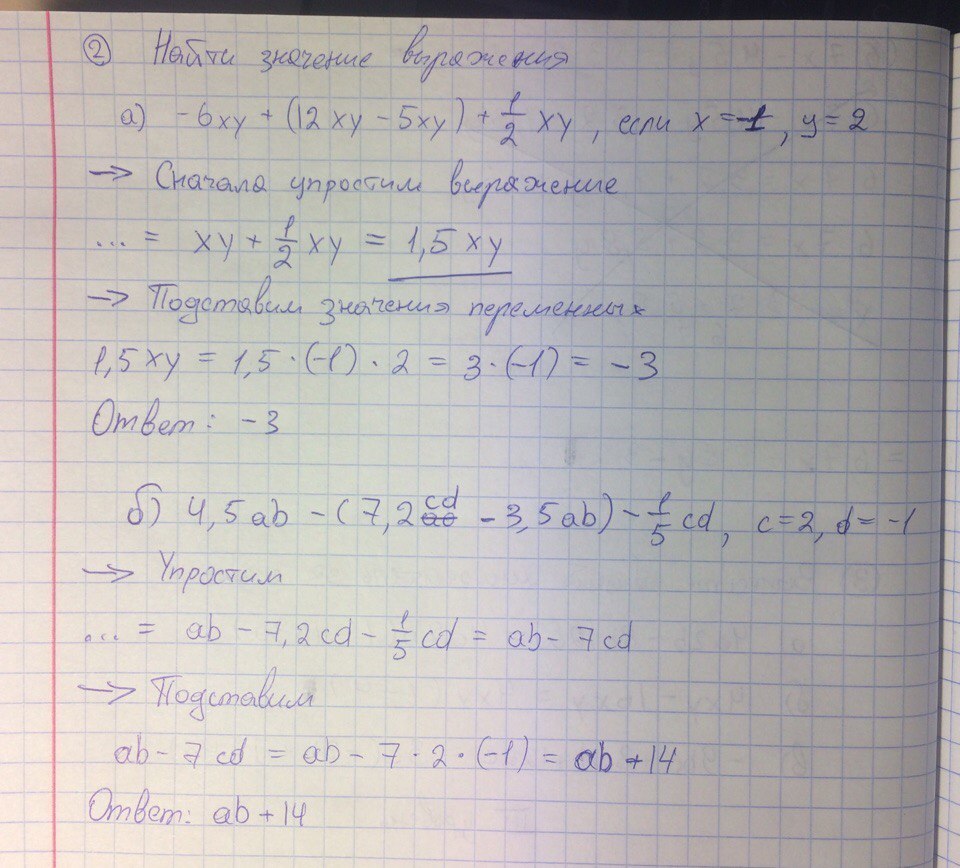 ② Найти значение выражения
а) -6xy + (12xy - 5xy) + 1/2 xy, если x = -1, y = 2
→ Сначала упростим выражение
... = xy + 1/2 xy = 1,5 xy
→ Подставим значения переменных
1,5 xy = 1,5 · (-1) · 2 = 3 · (-1) = -3
Ответ: -3
б) 4,5ab - (7,2cd - 3,5ab) - 1/5 cd, c = 2, d = -1
→ Упростим
... = ab - 7,2cd - 1/5 cd = ab - 7cd
→ Подставим
ab - 7cd = ab - 7 · 2 · (-1) = ab + 14
Ответ: ab + 14